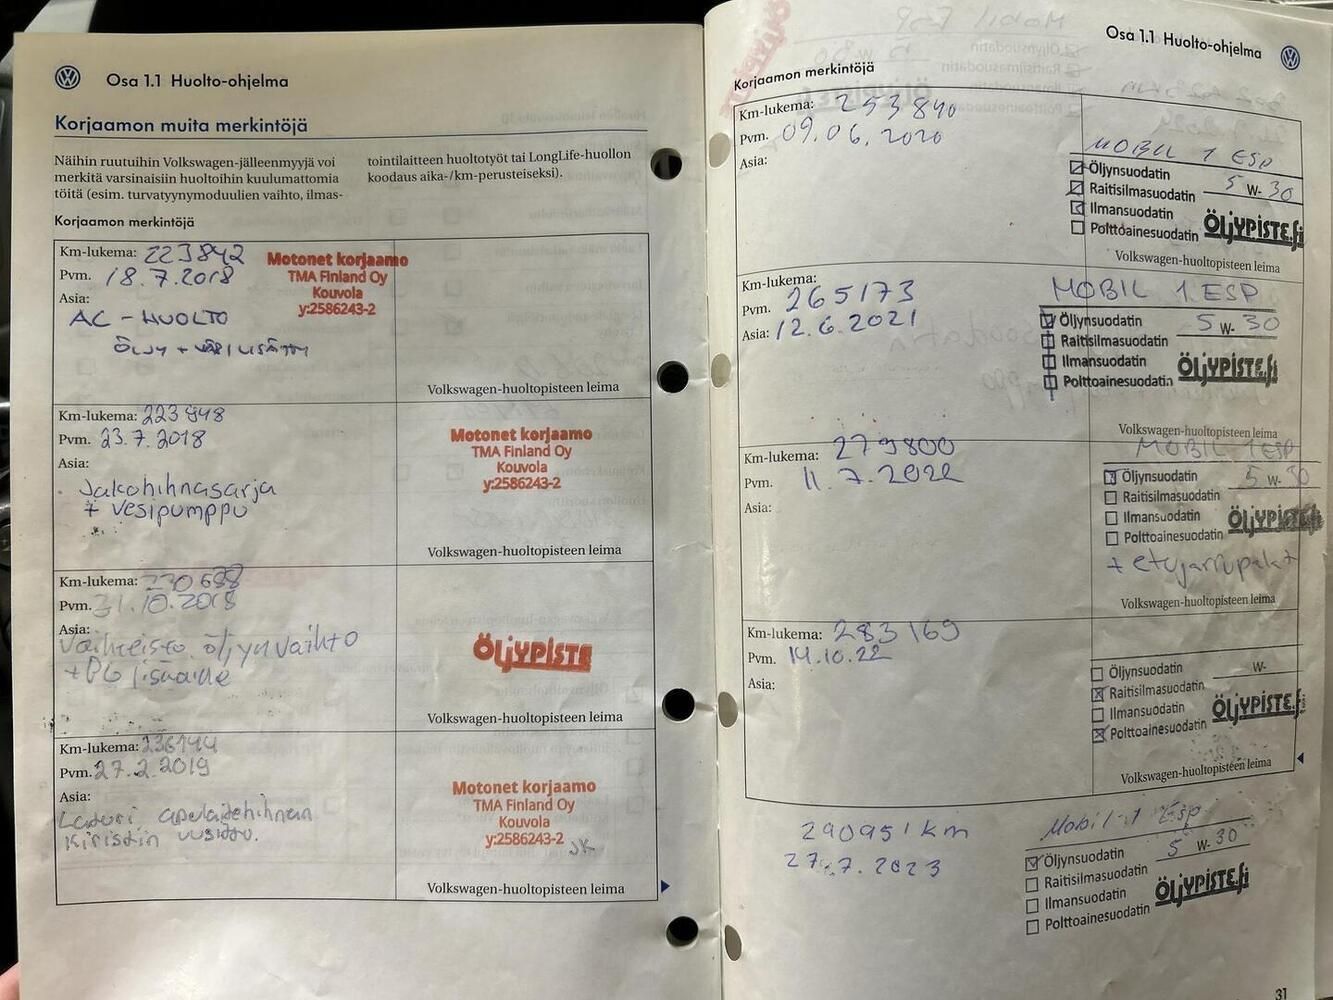 Osa 1.1 Huolto-ohjelma
Korjaamon muita merkintöjä
Näihin ruutuihin Volkswagen-jälleenmyyjä voi
merkitä varsinaisiin huoltoihin kuulumattomia
töitä (esim. turvatyynymoduulien vaihto, ilmas-
tointilaitteen huoltotyöt tai LongLife-huollon
koodaus aika-/km-perusteiseksi).
Korjaamon merkintöjä
Km-lukema: 223842
Pvm. 18.7.2018
Asia:
AC-HUOLTO
ÖLJY +
Motonet korjaamo
TMA Finland Oy
Kouvola
y:2586243-2
Volkswagen-huoltopisteen leima
Km-lukema: 223948
Pvm. 23.7.2018
Asia:
Jakohihnasarja
+ vesipumppu
Motonet korjaamo
TMA Finland Oy
Kouvola
y:2586243-2
Volkswagen-huoltopisteen leima
Km-lukema: 230688
Pvm. 31.10.2018
Asia:
Vaihteisto öljyn vaihto
+ lisäaine
ÖLJYPISTE
Volkswagen-huoltopisteen leima
Km-lukema: 236144
Pvm. 27.2.2019
Asia:
Laturi apulaitehihnan
kiristin uusittu.
Motonet korjaamo
TMA Finland Oy
Kouvola
y:2586243-2 JK
Volkswagen-huoltopisteen leima
Osa 1.1 Huolto-ohjelma
Korjaamon merkintöjä
Km-lukema: 253840
Pvm. 09.06.2020
Asia:
MOBIL 1 ESP
Öljynsuodatin
Raitisilmasuodatin 5 W- 30
Ilmansuodatin
Polttoainesuodatin ÖLJYPISTE.fi
Volkswagen-huoltopisteen leima
Km-lukema:
Pvm. 265173
Asia: 12.6.2021
MOBIL 1 ESP
Öljynsuodatin 5 W- 30
Raitisilmasuodatin
Ilmansuodatin
Polttoainesuodatin ÖLJYPISTE.fi
Volkswagen-huoltopisteen leima
Km-lukema: 279800
Pvm. 11.7.2022
Asia:
MOBIL 1 ESP
Öljynsuodatin 5 W- 30
Raitisilmasuodatin
Ilmansuodatin ÖLJYPISTE.fi
Polttoainesuodatin
+ etujarrupalat
Volkswagen-huoltopisteen leima
Km-lukema: 283169
Pvm. 14.10.22
Asia:
Öljynsuodatin W-
Raitisilmasuodatin
Ilmansuodatin ÖLJYPISTE.fi
Polttoainesuodatin
Volkswagen-huoltopisteen leima
290951 km
27.7.2023
Mobil 1 Esp
Öljynsuodatin 5 W- 30
Raitisilmasuodatin
Ilmansuodatin ÖLJYPISTE.fi
Polttoainesuodatin
31